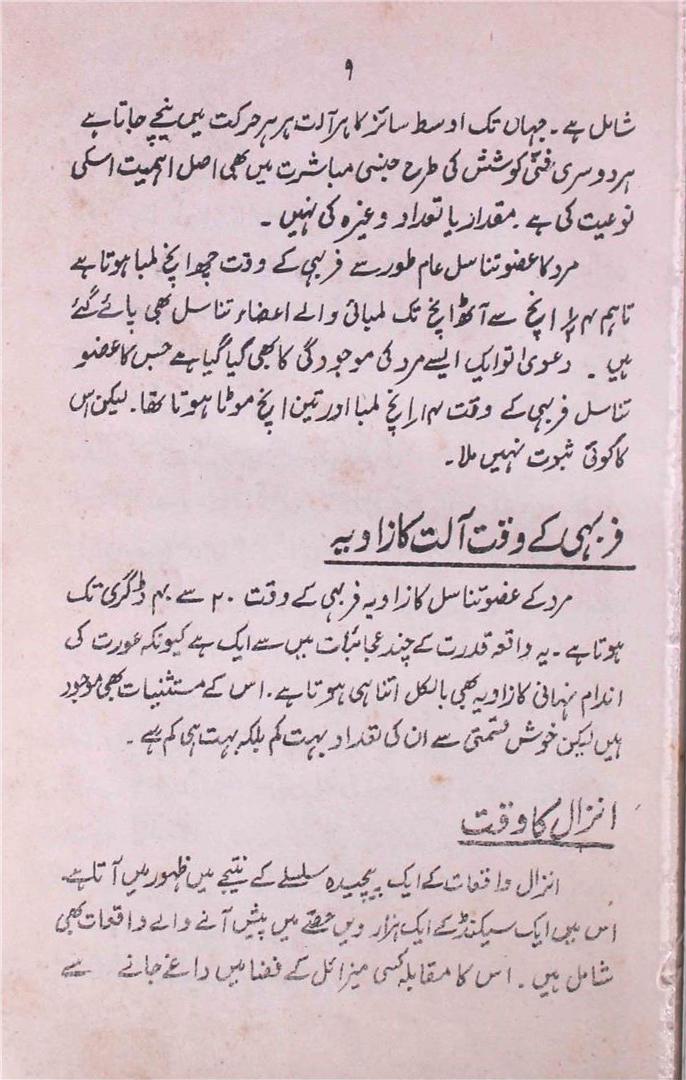 ۹
شامل ہے۔ جہاں تک اوسط سائز کا ہر آلت ہر ہر حرکت میں نیچے جاتا ہے
ہر دوسری فنّی کوشش کی طرح جنسی مباشرت میں بھی اصل اہمیت اسکی
نوعیت کی ہے۔ مقدار یا تعداد وغیرہ کی نہیں۔
مرد کا عضو تناسل عام طور سے فربہی کے وقت چھ انچ لمبا ہوتا ہے
تاہم انچ سے آٹھ انچ تک لمبائی والے اعضاء تناسل بھی پائے گئے
ہیں۔ دعویٰ تو ایک ایسے مرد کی موجودگی کا بھی گیا گیا ہے جس کا عضو
تناسل فربہی کے وقت ۱۴ انچ لمبا اور تین انچ موٹا ہوتا تھا۔ لیکن اس
کا کوئی ثبوت نہیں ملا۔
فربہی کے وقت آلت کا زاویہ
مرد کے عضو تناسل کا زاویہ فربہی کے وقت ۲۰ سے ۴۰ ڈگری تک
ہوتا ہے۔ یہ واقعہ قدرت کے چند عجائبات میں سے ایک ہے کیونکہ عورت کی
اندام نہانی کا زاویہ بھی بالکل اتنا ہی ہوتا ہے۔ اس کے مستثنیات بھی موجود
ہیں لیکن خوش قسمتی سے ان کی تعداد بہت کم بلکہ بہت ہی کم ہے۔
انزال کا وقت
انزال واقعات کے ایک پیچیدہ سلسلے کے نتیجے میں ظہور میں آتا ہے۔
اس میں ایک سیکنڈ کے ایک ہزار ویں حصّے میں پیش آنے والے واقعات بھی
شامل ہیں۔ اس کا مقابلہ کسی میزائل کے فضا میں داغے جانے سے